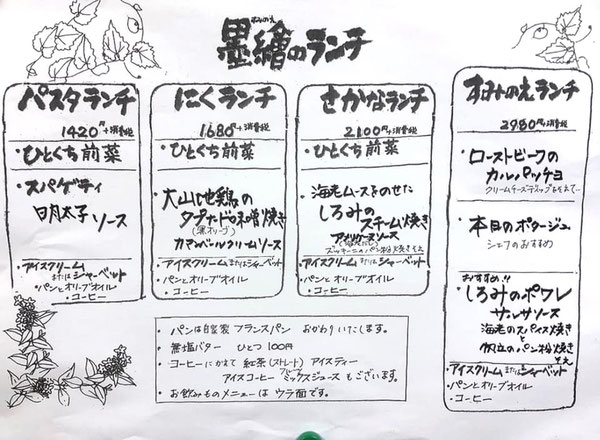 すみのえ
墨繪のランチ
パスタランチ
1420円+消費税
・ひとくち前菜
・スパゲティ
明太子ソース
・アイスクリームまたはシャーベット
・パンとオリーブオイル
・コーヒー
にくランチ
1680円+消費税
・ひとくち前菜
・大山地鶏の
タプナード味噌焼き
(黒オリーブ)
カマンベールクリームソース
・アイスクリームまたはシャーベット
・パンとオリーブオイル
・コーヒー
さかなランチ
2100円+消費税
・ひとくち前菜
・海老ムースをのせた
しろみの
スチーム焼き
アメリケーヌソース
ズッキーニのパン粉焼き添え
・アイスクリームまたはシャーベット
・パンとオリーブオイル
・コーヒー
すみのえランチ
2980円+消費税
・ローストビーフの
カルパッチョ
クリームチーズディップをそえて…
・本日のポタージュ
シェフのおすすめ
おすすめ!!
・しろみのポワレ
サルサソース
海老のスパイス焼き
と
帆立のパン粉焼き
そえ
・アイスクリームまたはシャーベット
・パンとオリーブオイル
・コーヒー
・パンは自家製フランスパン おかわりいたします。
・無塩バター ひとつ100円
・コーヒーにかえて 紅茶(ストレート) アイスティー
アイスコーヒー フルーツミックスジュースもございます。
・お飲みものメニューはウラ面です。